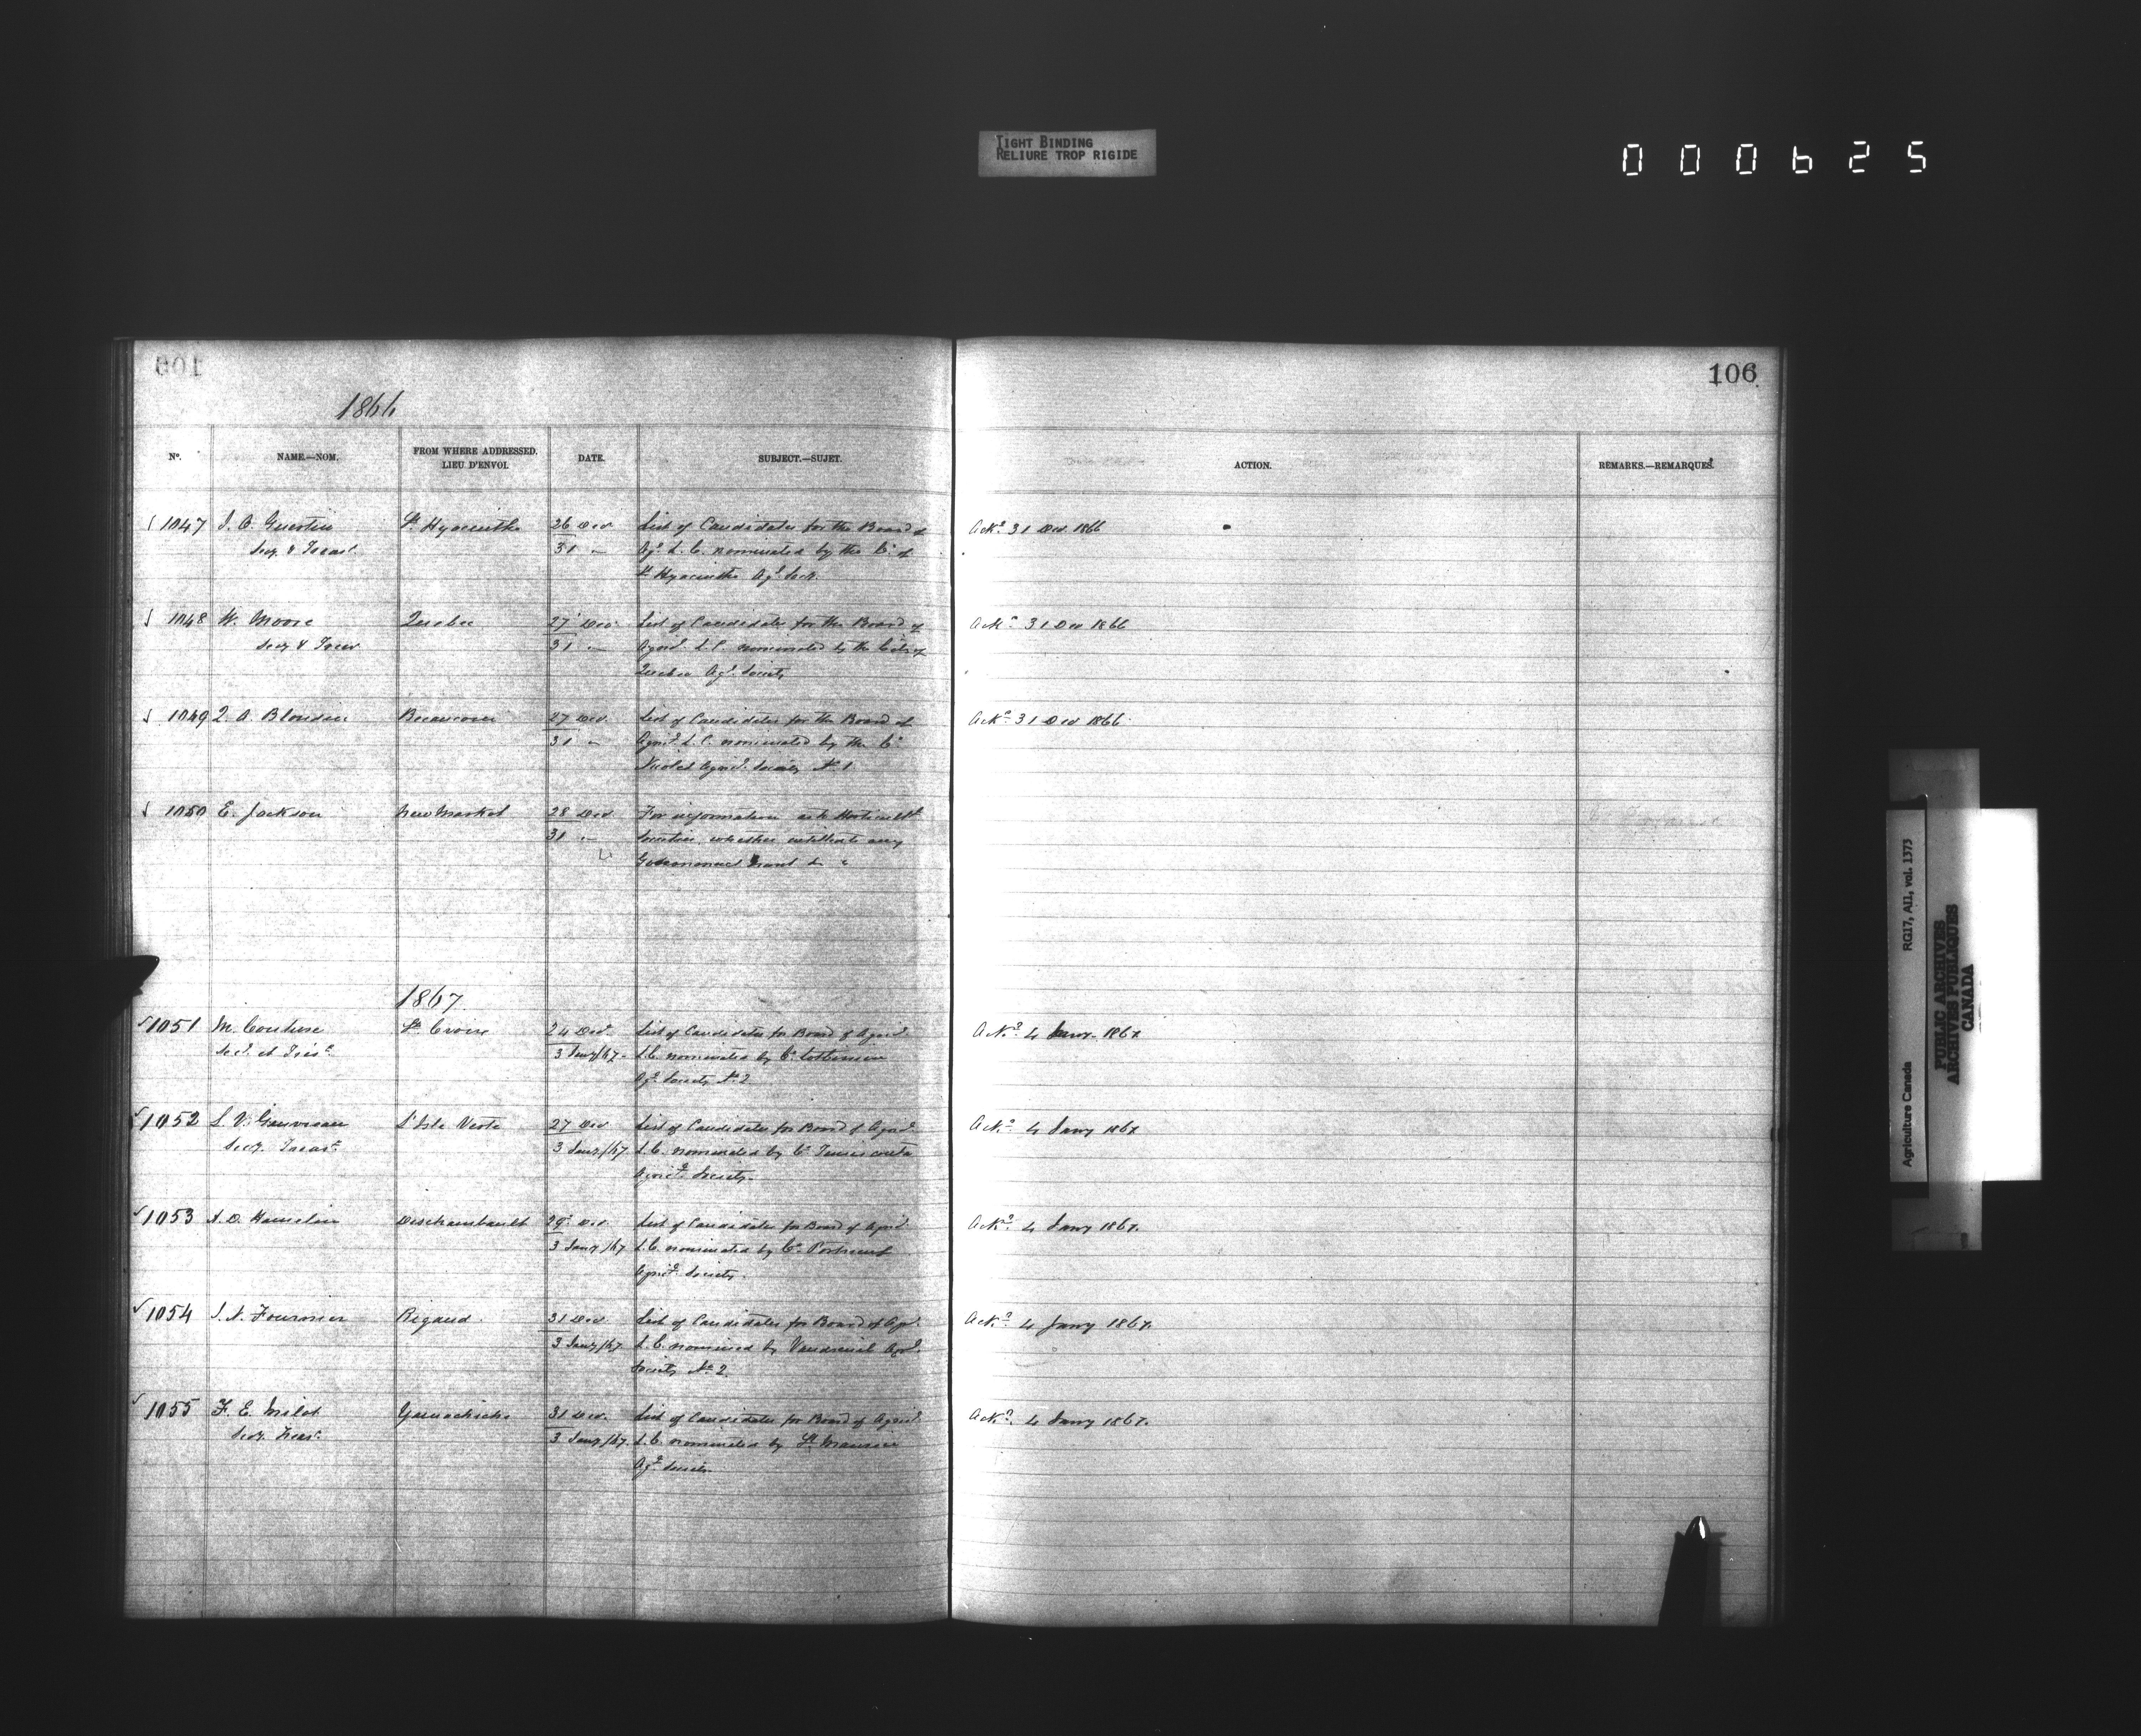 TIGHT BINDING
RELIURE TROP RIGIDE
000625
106
1866
No. NAME.—NOM. FROM WHERE ADDRESSED. LIEU D'ENVOI. DATE. SUBJECT.—SUJET. ACTION. REMARKS.—REMARQUES.
1047 St Hyacinthe 26 Decr List of Candidates for the Board of Ackd 31 Decr 1866
Secy & Treasr 31 " Agl L. C. nominated by the Co of
St Hyacinthe Agl Socy.
1048 W. Moore Quebec 27 Decr List of Candidates for the Board of Ackd 31 Dec 1866
Secy & Treasr 31 " L. C. nominated by the City of
Quebec Agl Society
1049 A. Blondin Becancour 27 Decr List of Candidates for the Board of Ackd 31 Decr 1866
31 " L. C. nominated by the Co
Nicolet Society No 1
1050 E. Jackson New Market 28 Decr For information as to
31 " Societies, whether entitled to any
Government Grant &c "
1867
1051 M. Couture Ste Croix 24 Decr List of Candidates for Board of Agricl Ackd 4 Jany 1867
Sec. et Trésr 3 Jany/67 L. C. nominated by Co Lotbiniere
Agl Society No 2
1052 L. V. Gauvreau L'Isle Verte 27 Decr List of Candidates for Board of Agricl Ackd 4 Jany 1867
Secy. Treasr 3 Jany/67 L. C. nominated by Co Temiscouata
Agricl Society.
1053 Hamelin Deschambault 29 Decr List of Candidates for Board of Agricl Ackd 4 Jany 1867.
3 Jany/67 L. C. nominated by Co Portneuf
Agricl Society.
1054 Fournier Rigaud. 31 Decr List of Candidates for Board of Agl Ackd 4 Jany 1867.
3 Jany/67 L. C. nominated by Vaudreuil Agl
Society No 2.
1055 F. E. Milot Yamachiche 31 Decr List of Candidates for Board of Agricl Ackd 4 Jany 1867.
Secy. Treasr 3 Jany/67. L. C. nominated by St Maurice
Agl Society
Agriculture Canada RG17, AII, vol. 1373
PUBLIC ARCHIVES
ARCHIVES PUBLIQUES
CANADA